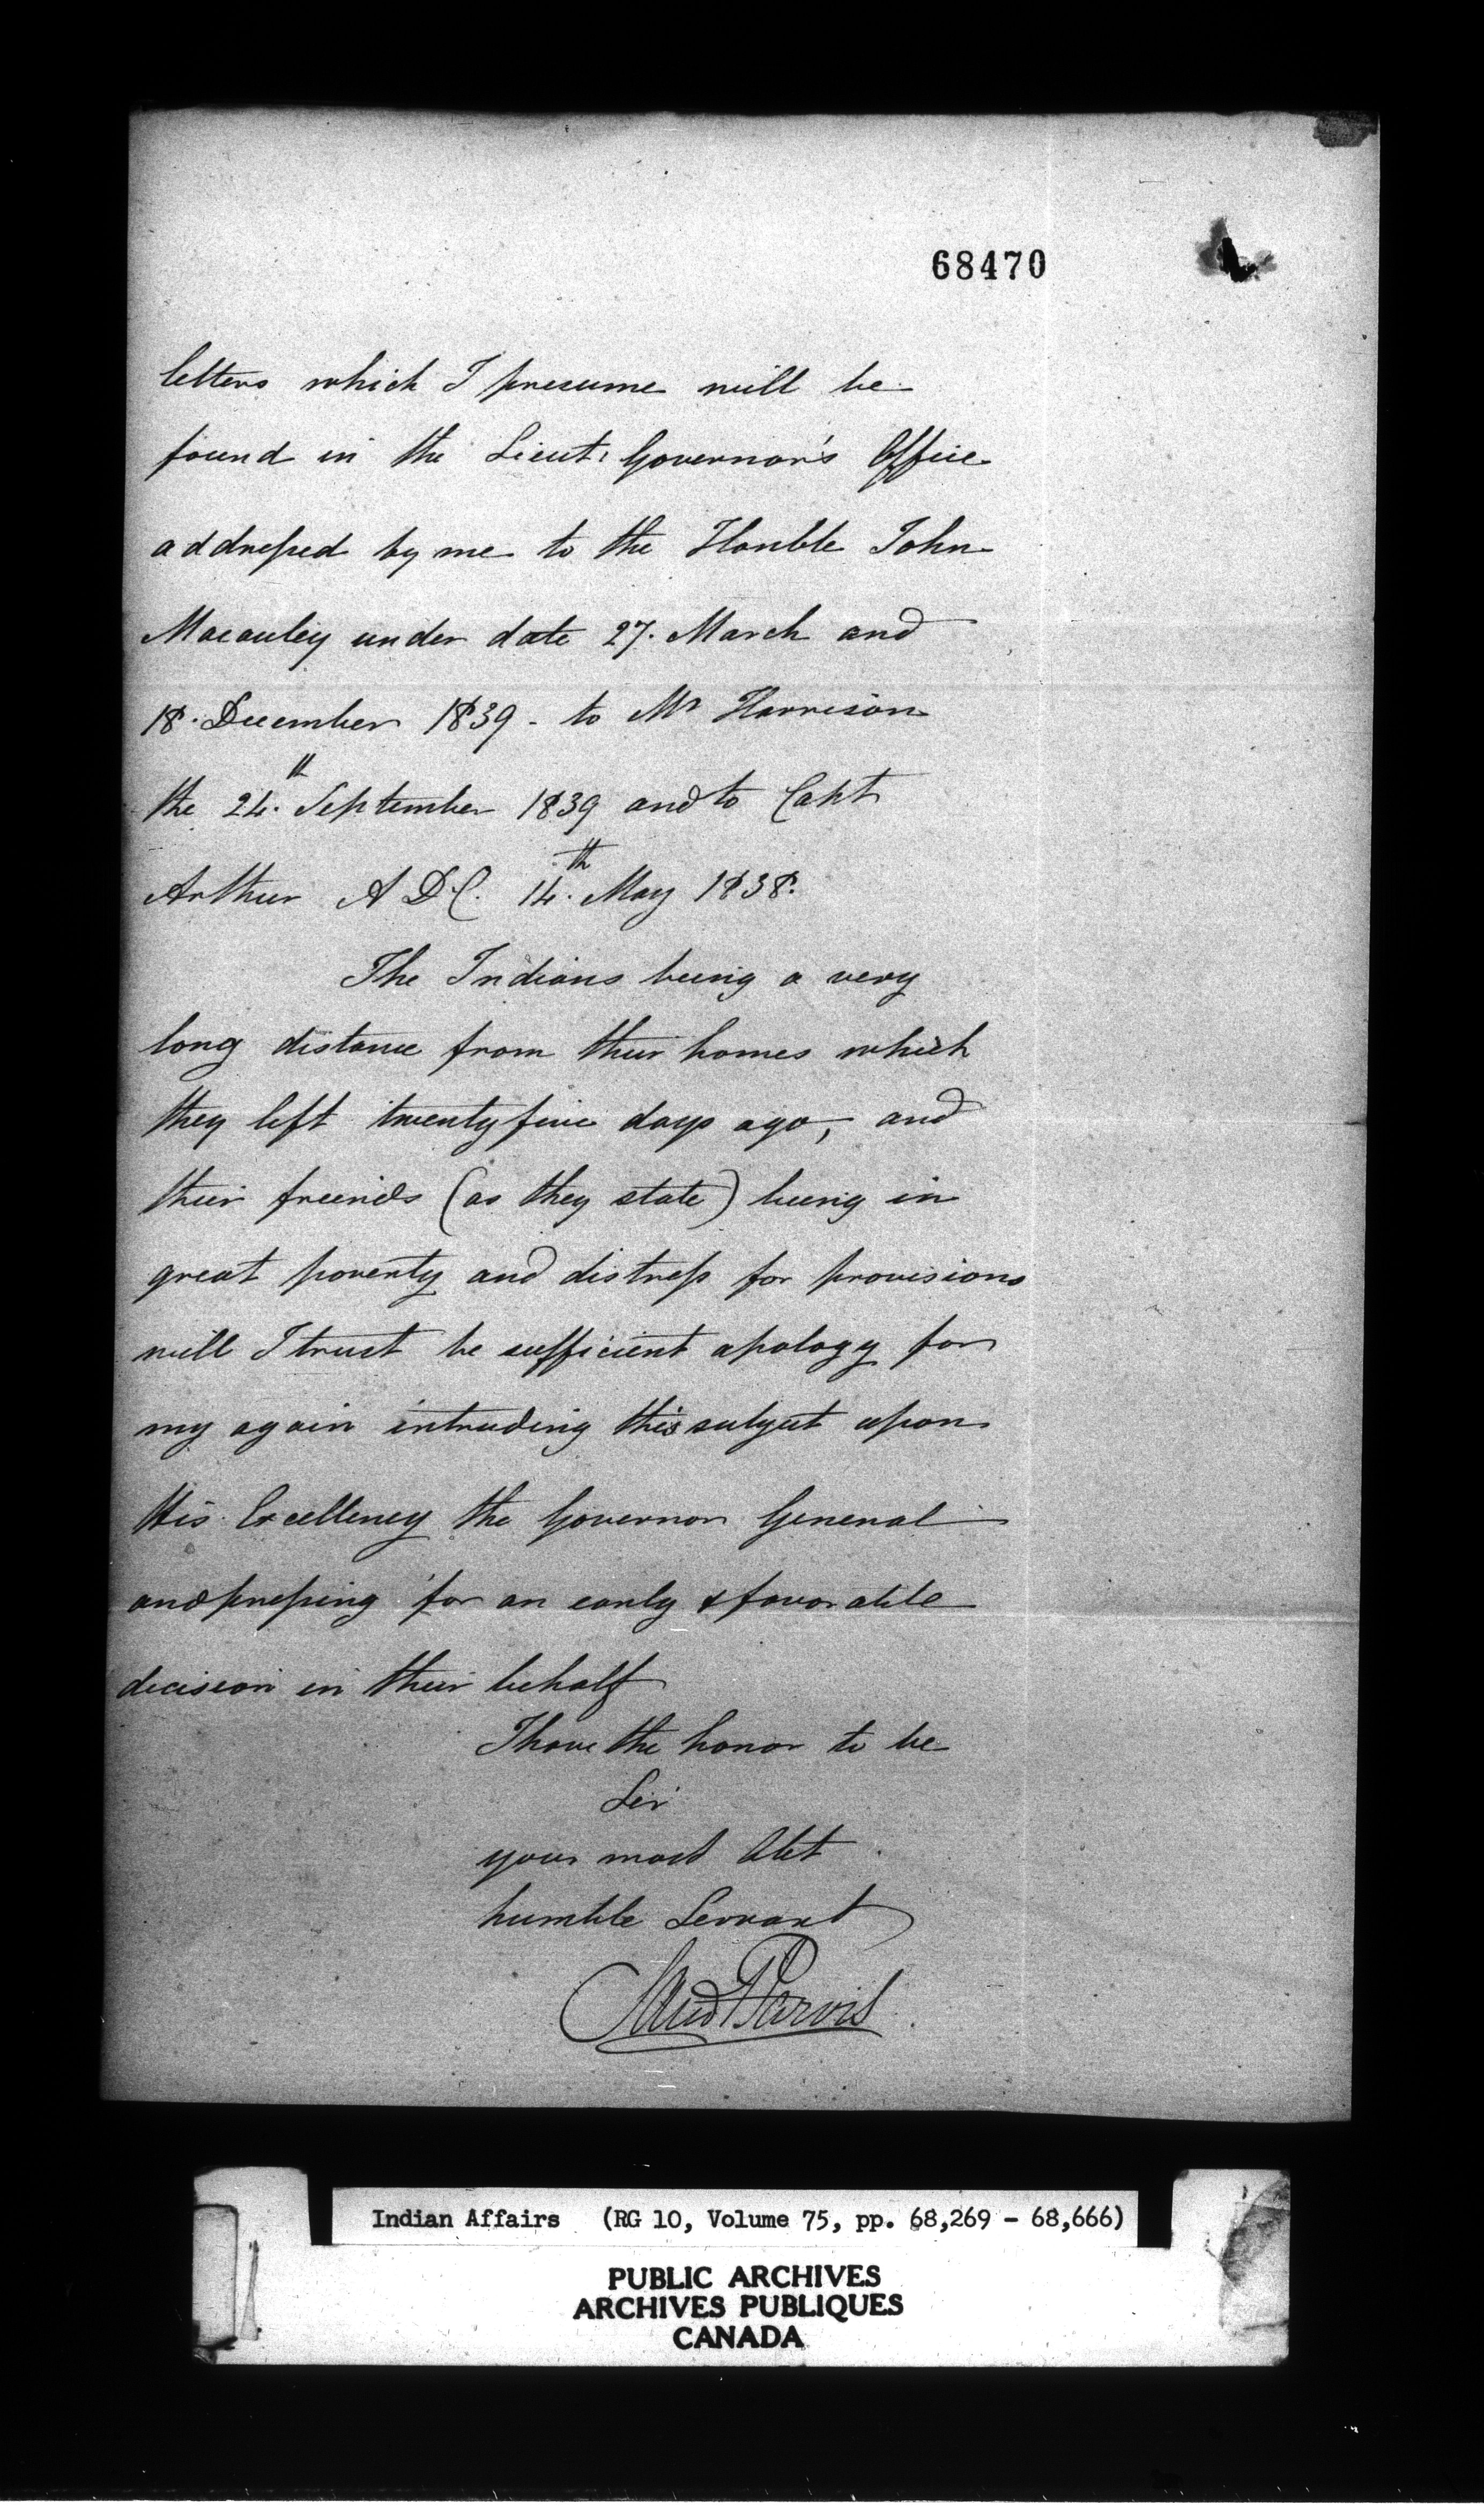 68470
letters which I presume will be
found in the Lieut. Governor's Office
addressed by me to the Honble John
Macauley under date 27. March and
18. December 1839 - to Mr Harrison
the 24.th September 1839 and to Capt
Arthur A D C. 14.th May 1838.
The Indians being a very
long distance from their homes which
they left twenty five days ago, and
their freinds (as they state) being in
great poverty and distress for provisions
will I trust be sufficient apology for
my again intruding this subject upon
His Excellency the Governor General
and pressing for an early & favorable
decision in their behalf
I have the honor to be
Sir
your most Obt
humble Servant
Jarvis
Indian Affairs (RG 10, Volume 75, pp. 68,269 - 68,666)
PUBLIC ARCHIVES
ARCHIVES PUBLIQUES
CANADA